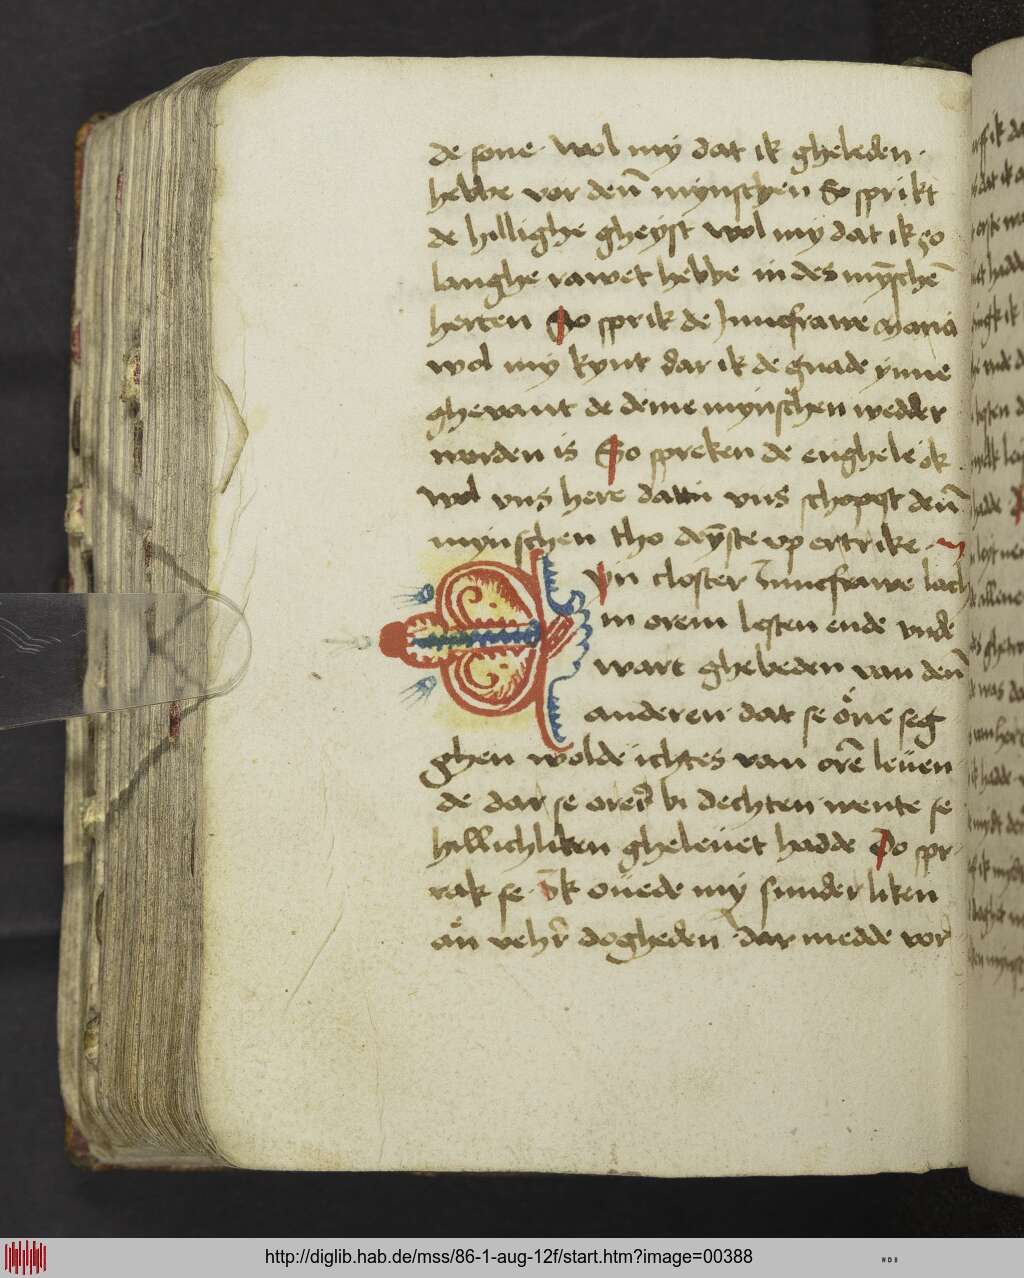 de sone · wol my dat ik gheleden ·
hebbe vor den̄ mynschen So sprikt
de hillighe gheyst wol my dat ik so
langhe rawet hebbe in des mȳschē
herten So sprik de Juncfrawe maria
wol my kynt dar ik de gnade ynne
ghevant de deme mynschen wedder
worden is So spreken de enghele ok
wol vns here dattu vns schopest den̄
mynschen tho deȳste vp ertrike ·
Eyn closter Juncfrawe lach
in orem lesten ende vnde
wart ghebeden van den̄
anderen dat se oͤne seg
ghen wolde ichtes van orē leuen
de dar se ores bi dechten wente se
hillichliken gheleuet hadde Do spr
rak se Ik ouede my sunderliken
an vehr dogheden dar medde vor
http://diglib.hab.de/mss/86-1-aug-12f/start.htm?image=00388